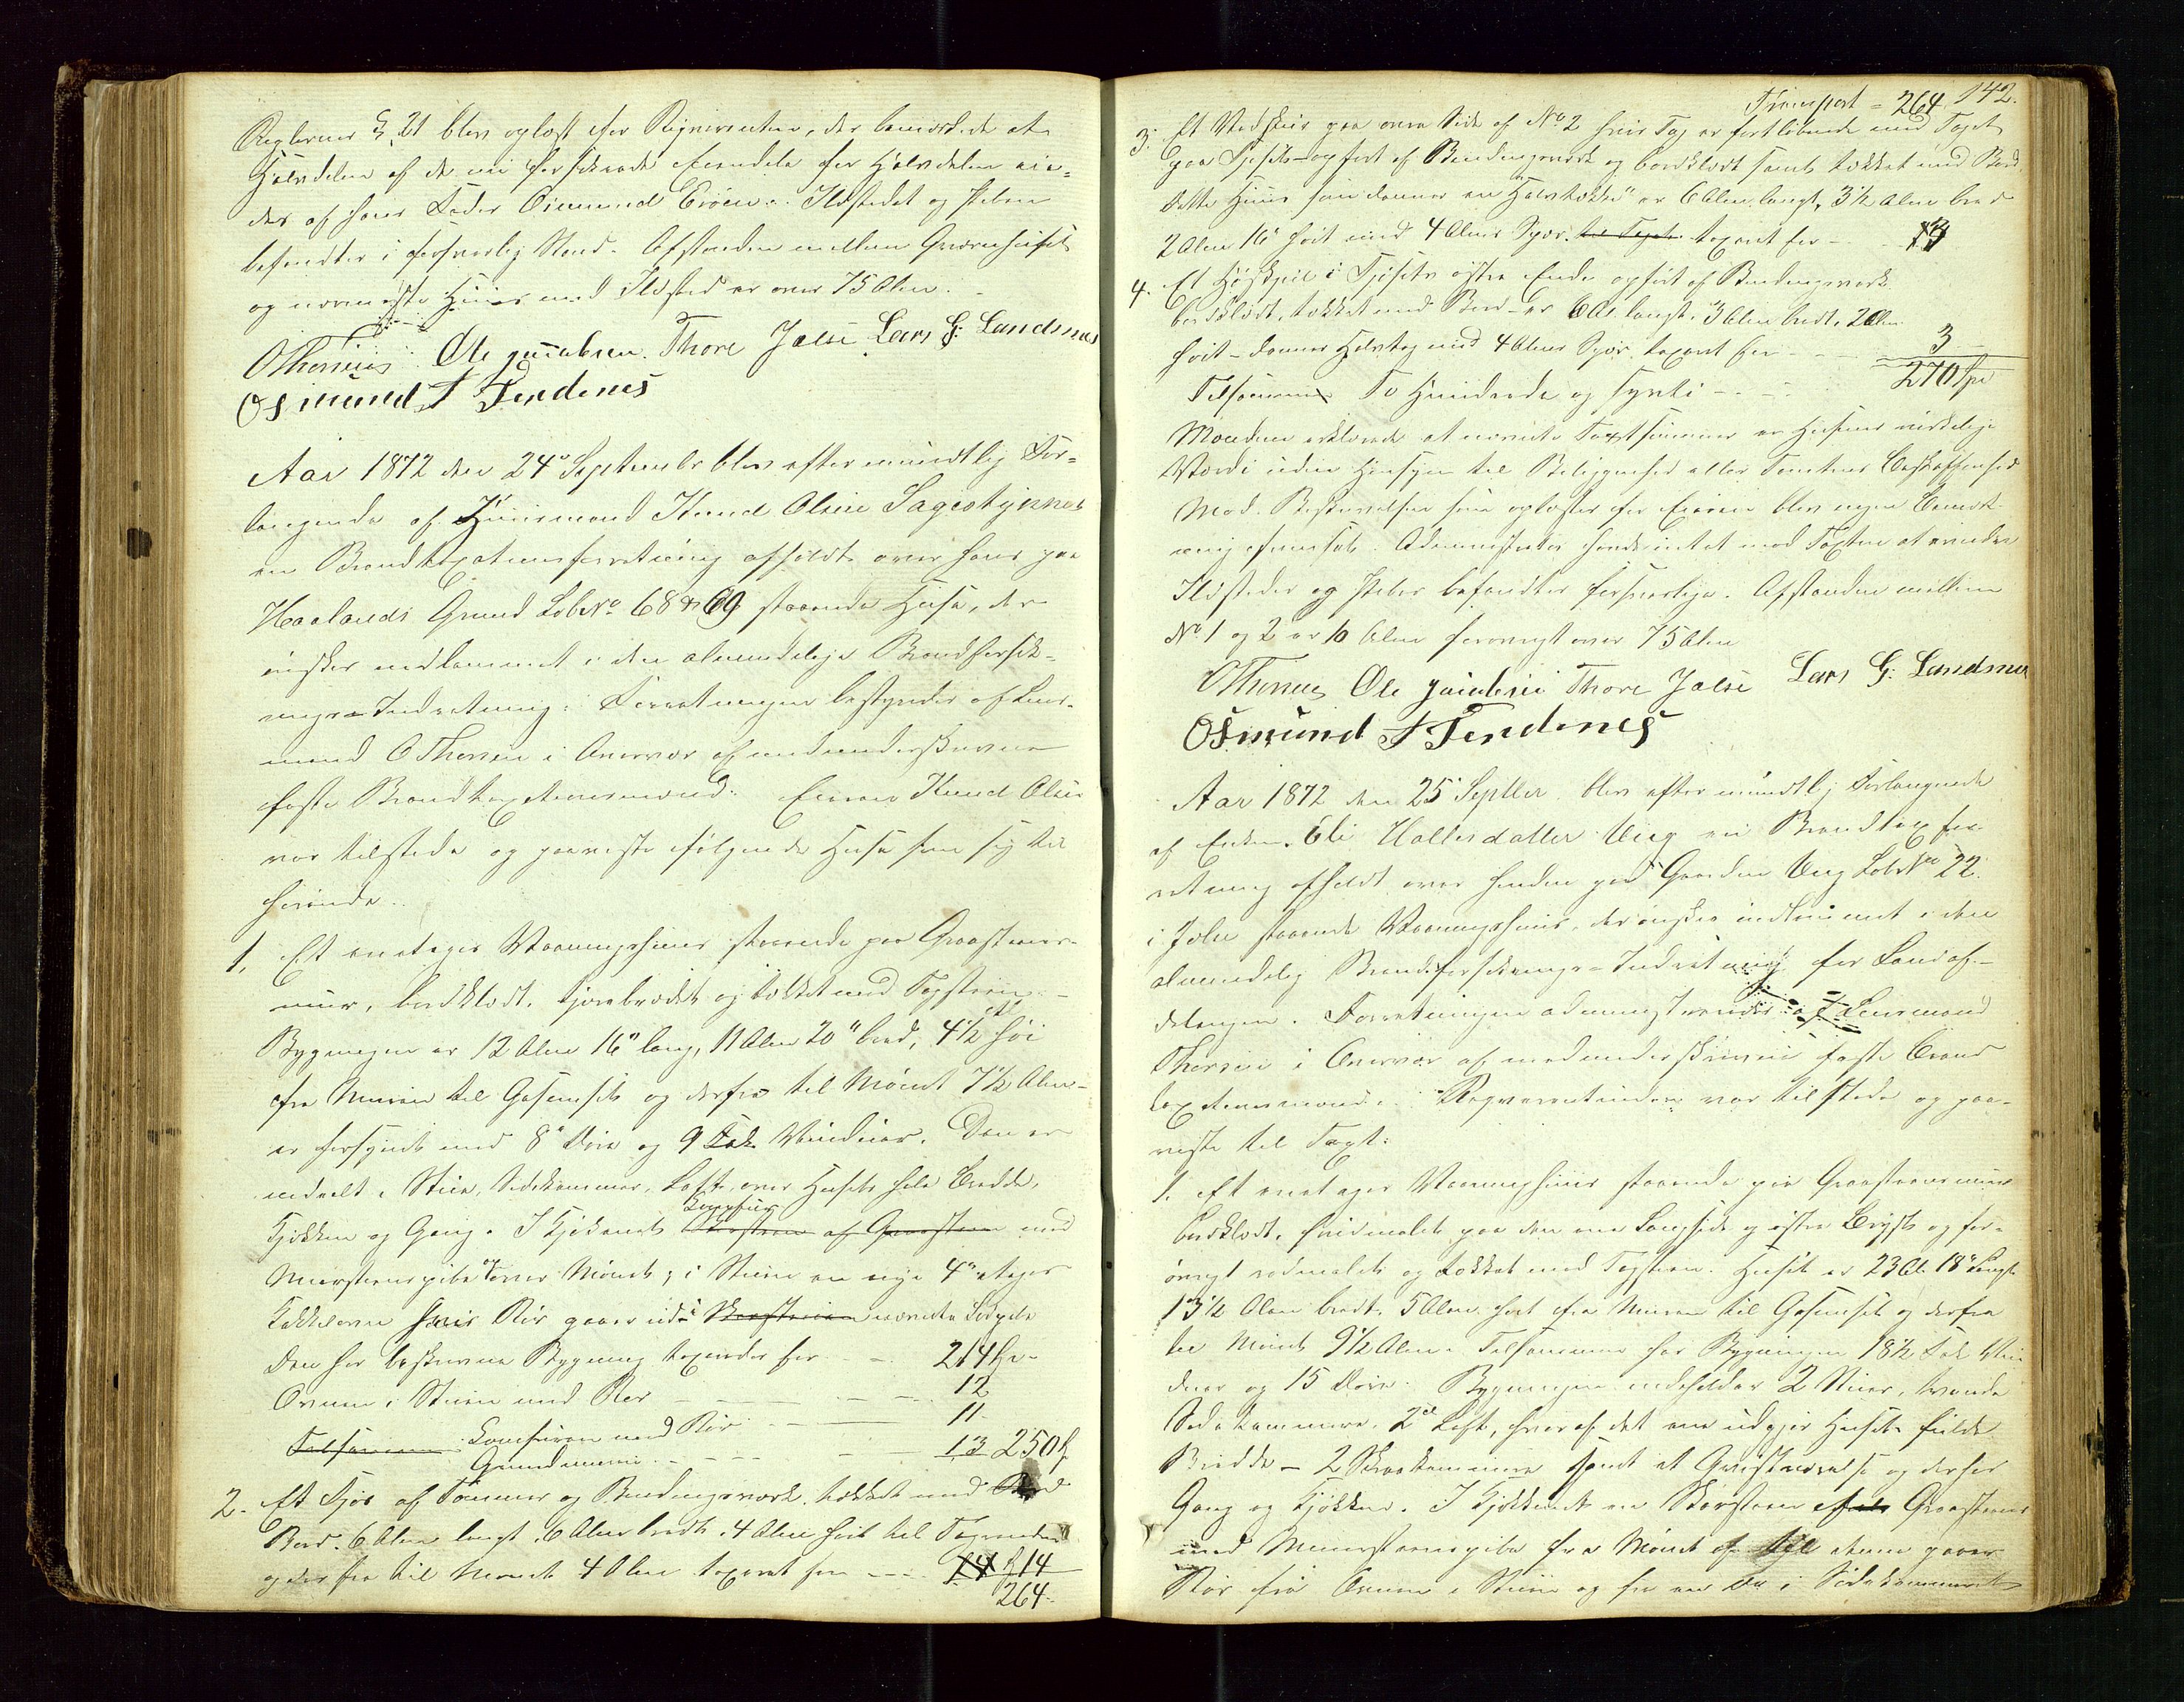 Reglernes § 21 blev oplæst for Reqvirenten, der bemærkede at
Halvdelen af de nu forsikrede Eiendele for Halvdelen eie-
des af hans Fader Osmund Eiroen. Ildstedet og Piben
befandtes i forsvarlig Stand. Afstanden mellem Qværnhuset
og nærmeste Huus med Ildsted er over 75 Alen.
OThorsen Ole Jacobsen. Thore Jølse Lars G: Landsnes
Osmund T Tendenes
Aar 1872 den 24de September blev efter mundtlig For-
langende af Huusmand Knud Olsen
en Brandtaxationsforretning afholdt over hans paa
Haalands Grund Løb No 68 & 69 staaende Huse, der
ønskes indlemmet i den almindelige Brandforsik-
rings-Indretning. Forretningen bestyredes af Lens-
mand OThorsen i Overvær af medunderskrevne
faste Brandtaxationsmænd. Eieren Knud Olsen
var tilstede og paaviste følgende Huse som sig til-
hørende.
1, Et enetages Vaaningshuus staaende paa Graasteens-
muur, bordklædt, tjærebrædet og tækket med Tagsteen.
Bygningen er 12 Alen 16" lang, 11 Alen 20" bred, 4½ Al høi
fra Muren til Gesimset og derfra til Mønet 7½ Alen
er forsynet med 8 Døre og 9 Fak Vinduer. Den er
inddelt i Stue, Sidekammer, Loft over Husets hele Bredde,
Kjøkken og Gang. I Kjøkkenet Komfur Skorsteen af Graasteen med
Muursteenspibe op over Mønet; i Stuen en ny 4 etages
Kakkelovn hvis Rør gaaer ud i Skorstenen nævnte
Den her beskrevne Bygning taxeredes for - - 214 Spd
Ovnen i Stuen med Rør - - - 12
Tilsammen Komfuren med Rør - - 11
Grundmuren - - - - 13 250 Sp
2. Et Fjøs af Tømmer og Bindingsværk, tækket med Bord
Bord. 6 Alen langt, 6 Alen bredt, 4 Alen høit til Tagranden
og derfra til Mønet 4 Alen taxeret for - - - 14 Sp 14
264
Transport = 264 142.
3. Et Vedskuur paa øvre Side af No 2 hvis Tag er fortløbende med Taget
paa Fjøset - opført af Bindingsværk og bordklædt samt tækket med Bord
Dette Huus som danner en "Halvtække" er 6 Alen langt, 3½ Alen bredt
2 Alen 16" høit med 4 Alens Spær, til Taget taxeret for - - 3
4. Et Høskjul i Fjøsets østre Ende opført af Bindingsværk
bordklædt, tækket med Bord - er 6 Al. langt. 3 Alen bredt, 2 Alen
høit - danner Halvtag med 4 Alens Spær taxeret for - - 3
Tilsammen To Hundrede og Sytti - - - 270 Spd
Mændene erklærede at nævnte Taxtsummer er Husenes virkelige
Værdi uden Hensyn til Beliggenhed eller Tomtens Beskaffenhed
Mod Beskrivelsen som oplæstes for Eieren blev ingen Bemærk-
ning fremsat. Administrator havde intet mod Taxten at erindre
Ildsteder og Piber befandtes forsvarlige. Afstanden mellem
No 1 og 2 er 10 Alen forøvrigt over 75 Alen
OThorsen Ole Jacobsen Thore Jølse Lars G: Landsnes
Osmund T Tendenes
Aar 1872 den 25 Septber. blev efter mundtlig Forlangende
af Enken Eli Hallesdatter Vieg en Brandtaxfor-
retning afholdt over hendes paa Gaarden Vieg Løb No 22
i Jølse staaende Vaaningshuus, der ønskes indlemmet i den
almindelig Brandforsikrings-Indretning for Landaf-
delingen. Forretningen administreredes af Lensmand
Thorsen i Overvær af medunderskrevne faste Brand-
taxationsmænd. Reqvirentinden var tilstede og paa-
viste til Taxt:
1. Et enetages Vaaningshuus staaende paa Graasteensmuur
bordklædt, hvidmalet paa den ene Langside og østre Bryst og for-
øvrigt rødmalet og tækket med Tagsteen. Huset er 23 Al. 18" langt
13½ Alen bredt, 5 Alen høit fra Muren til Gesimset og derfra
til Mønet 9½ Alen. Tilsammen har Bygningen 18½ Fak Vin-
duer og 15 Døre. Bygningen indeholder 2 Stuer, tvende
Sidekammere, 2de Loft, hvoraf det ene udgjør Husets fulde
Bredde - 2 Skraakammere samt et Gjestværelse og derhos
Gang og Kjøkken. I Kjøkkenet en Skorsteen af Graasteen
med Muursteenspibe fra Mønet af til denne gaaer
Rør fra Ovnen i Stuen og fra en Do i Sidekammeret